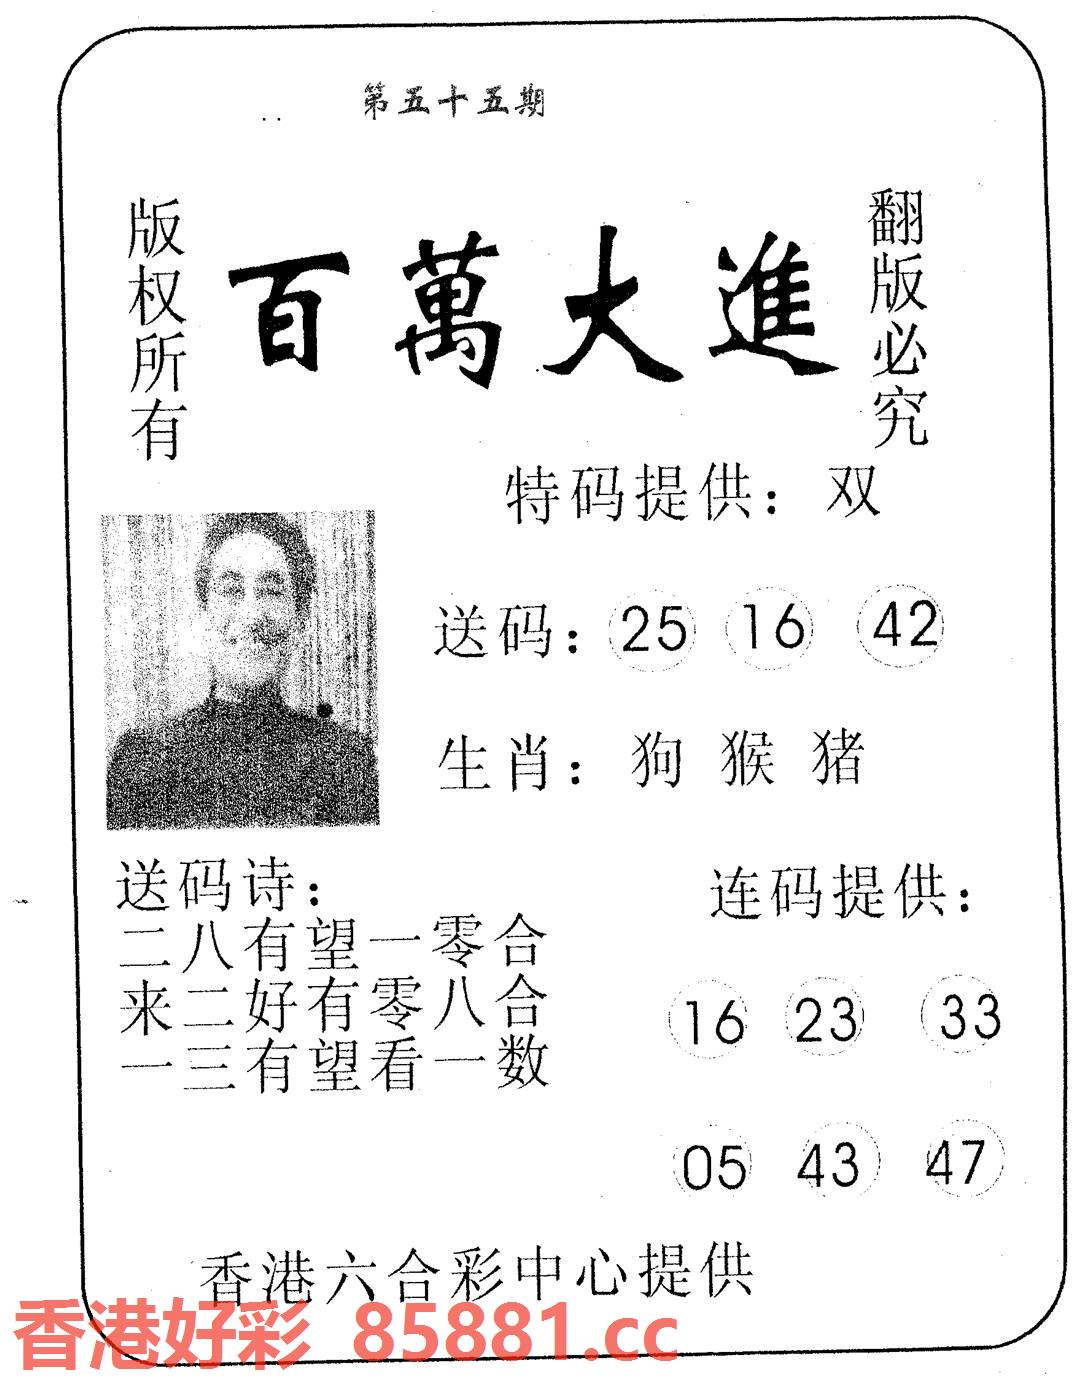 第五十五期
版权所有
百萬大進
翻版必究
特码提供：双
送码：25 16 42
生肖：狗 猴 猪
送码诗：
二八有望一零合
来二好有零八合
一三有望看一数
连码提供：
16 23 33
05 43 47
香港六合彩中心提供
香港好彩 85881.cc